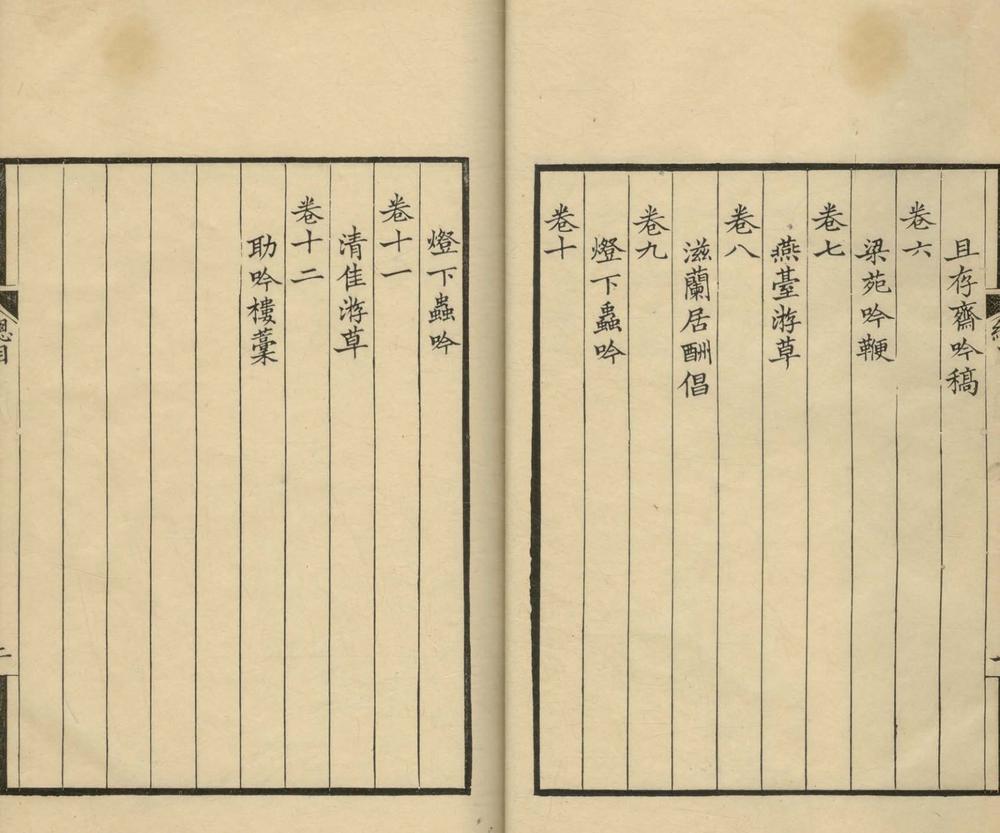 且存齋吟稿
卷六
梁苑吟鞭
卷七
燕臺游草
卷八
滋蘭居酬倡
卷九
燈下蟲吟
卷十
燈下蟲吟
卷十一
清佳游草
卷十二
助吟樓藁
總目
二